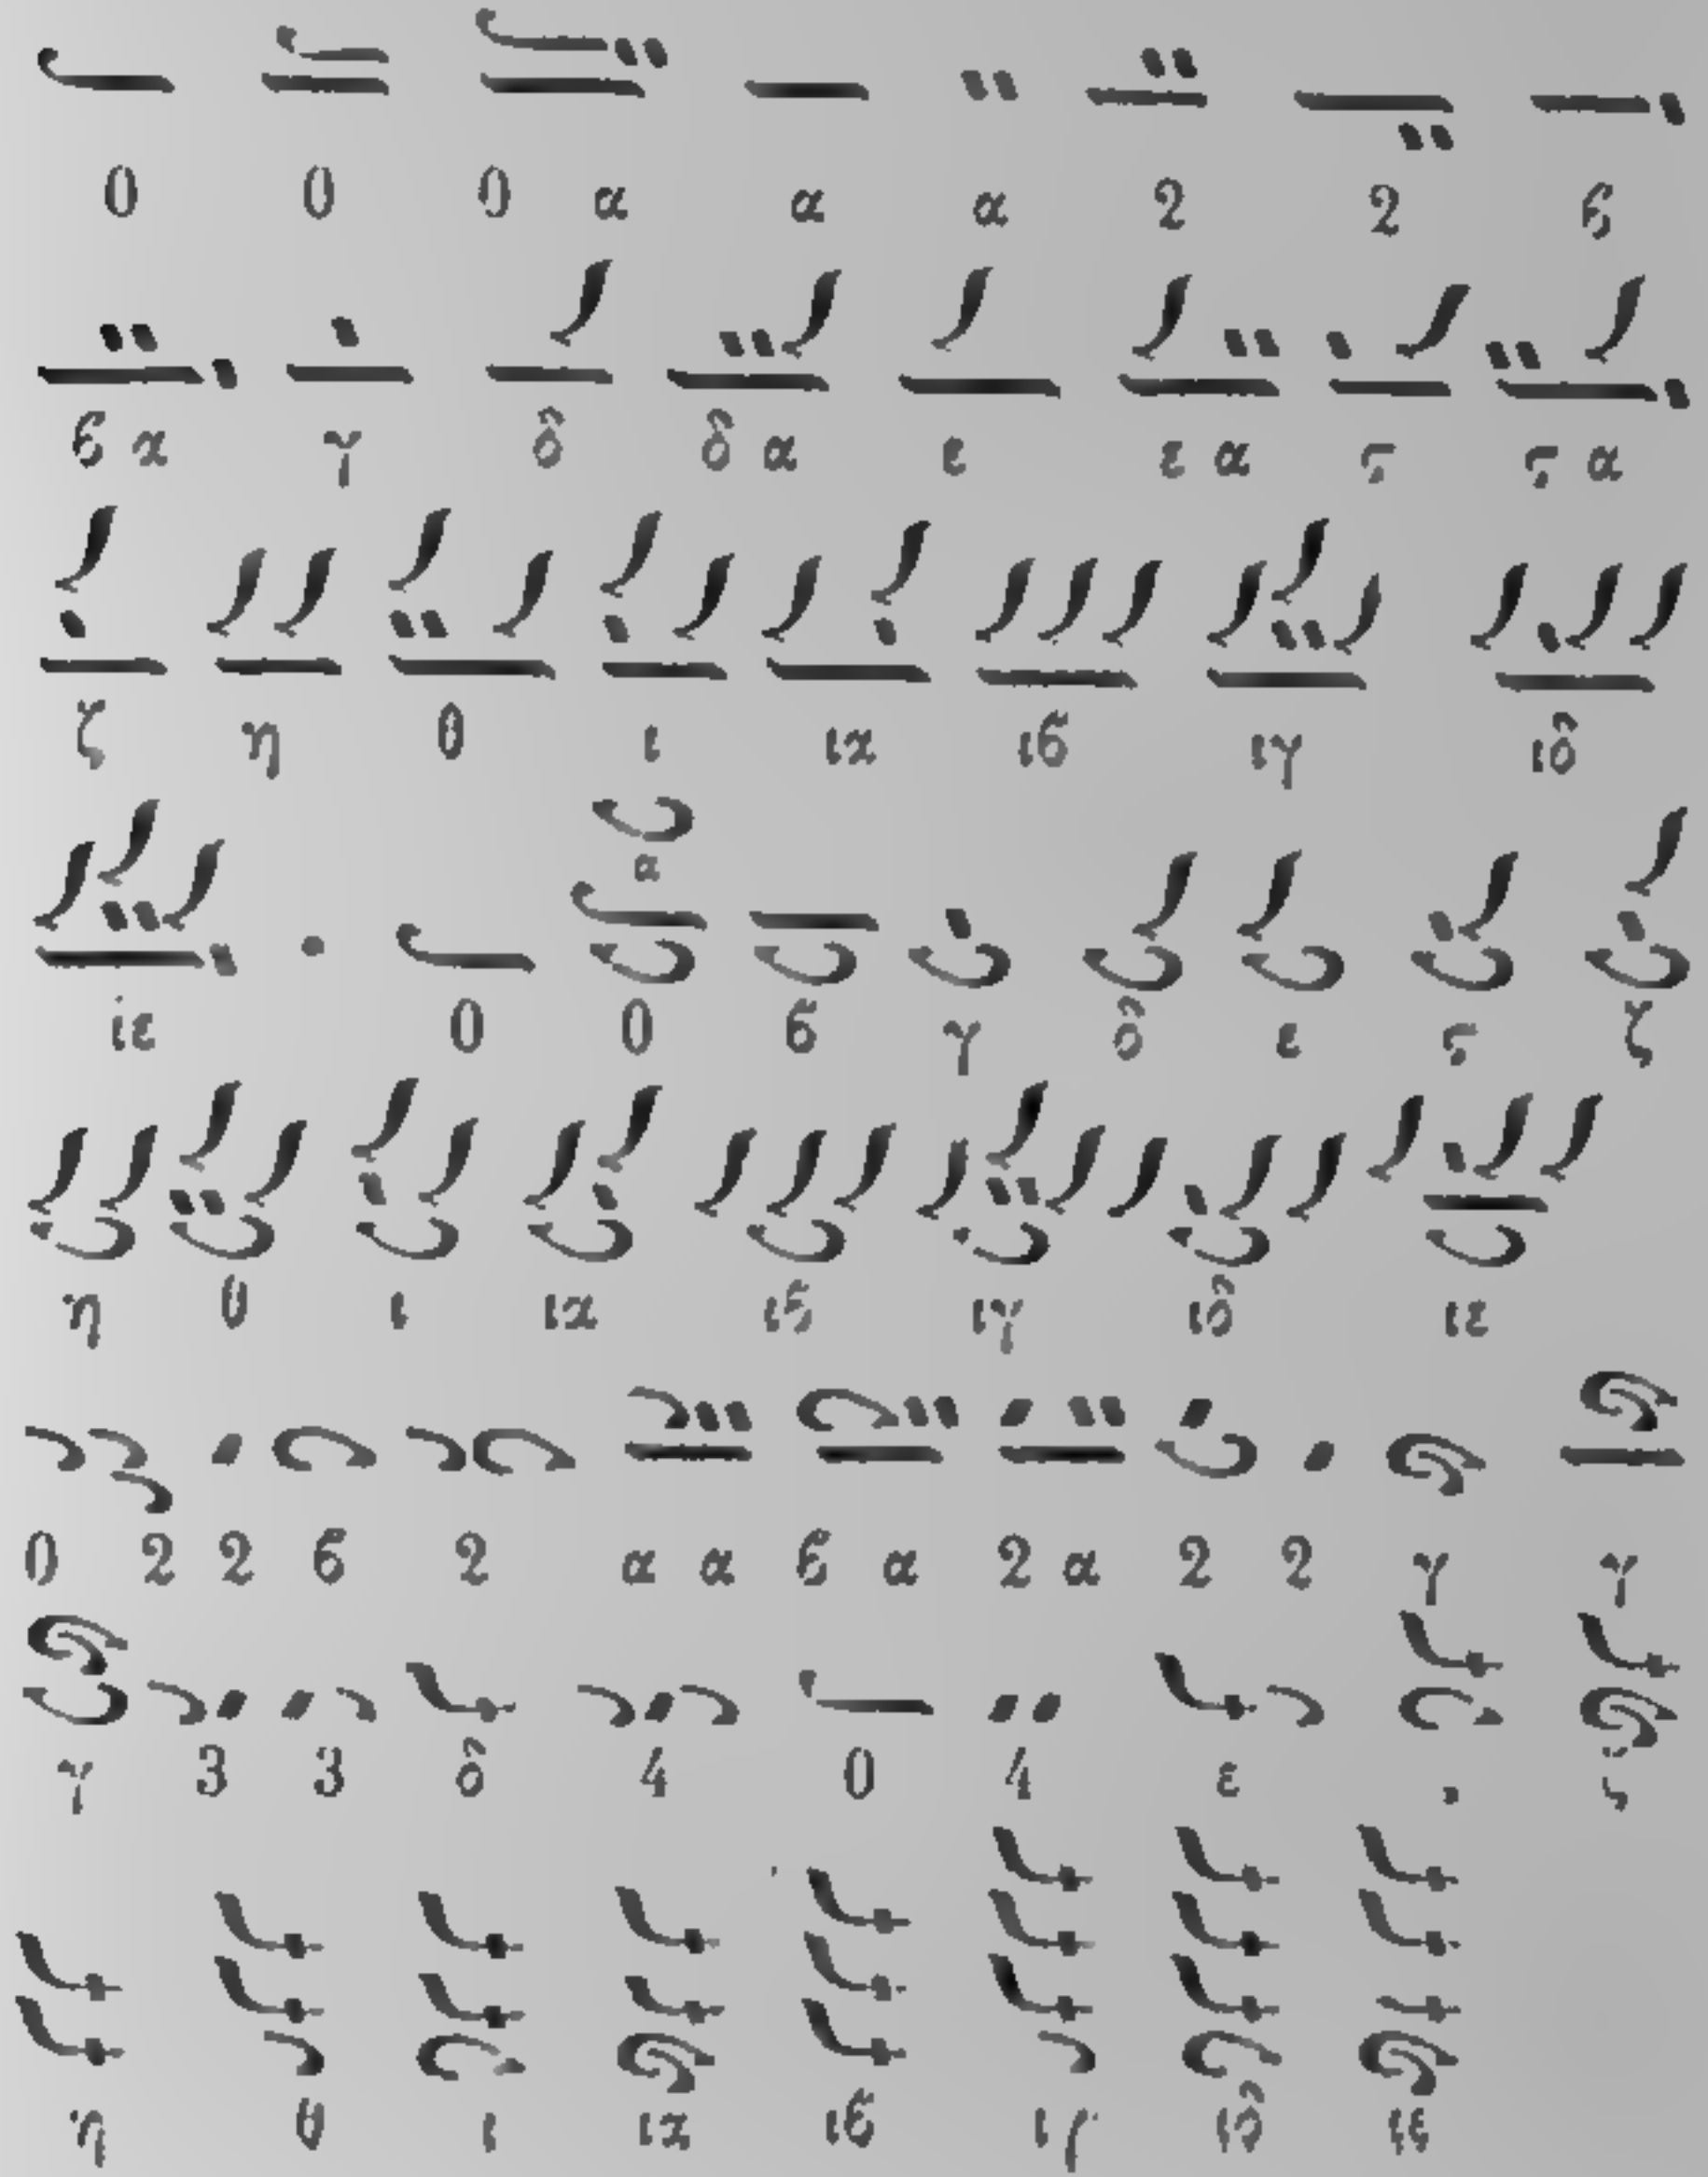 0 0 0 α α α 2 2 ϐ
ϐ α γ δ δ α ε ε α ς ς α
ζ η θ ι ια ιϐ ιγ ιδ
α
ιε 0 0 ϐ γ δ ε ς ζ
η θ ι ια ιϐ ιγ ιδ ιε
0 2 2 ϐ 2 α α ϐ α 2 α 2 2 γ γ
γ 3 3 δ 4 0 4 ε ζ
η θ ι ια ιϐ ιγ ιδ ιε